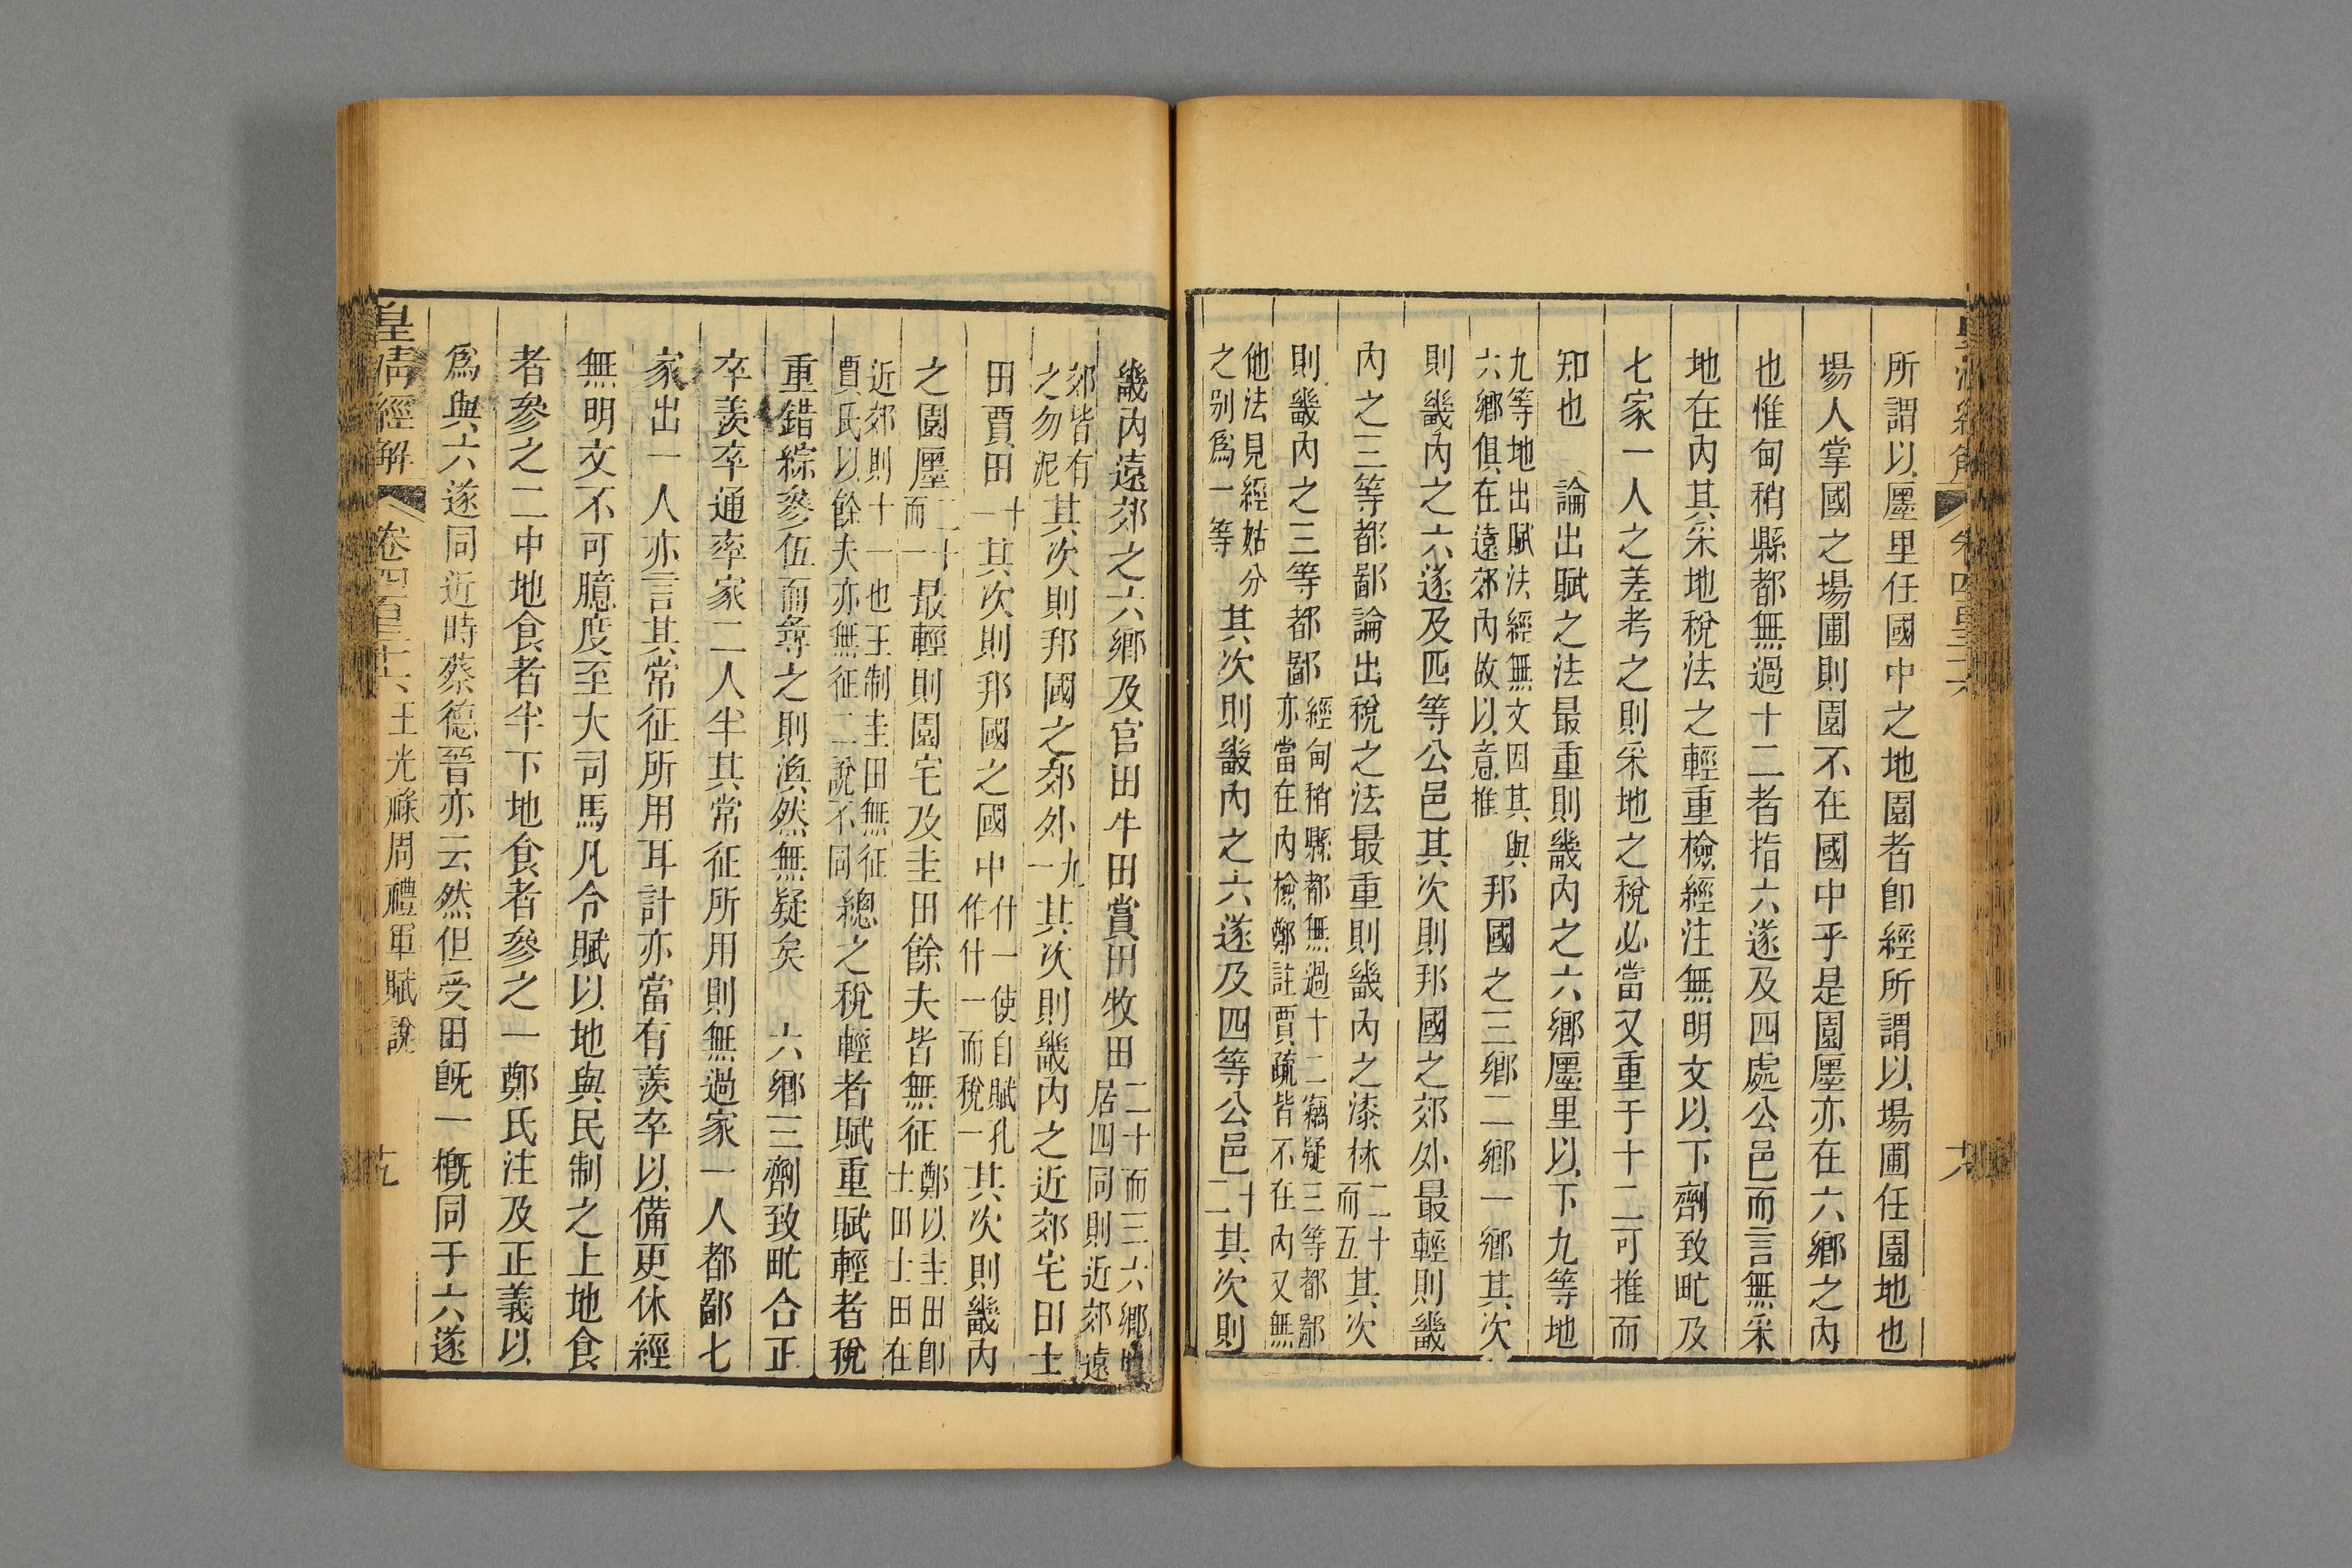 所謂以廛里任國中之地園者卽經所謂以場圃任園地也
場人掌國之場圃則園不在國中乎是園廛亦在六鄉之內
也惟甸稍縣都無過十二者指六遂及四處公邑而言無采
地在內其采地稅法之輕重檢經注無明文以下劑致甿及
七家一人之差考之則采地之稅必當又重于十二可推而
知也　論出賦之法最重則畿內之六鄉廛里以下九等地
九等地出賦法經無文因其與六鄉俱在遠郊內故以意推邦國之三鄉二鄉一鄉其次
則畿內之六遂及四等公邑其次則邦國之郊外最輕則畿
內之三等都鄙論出稅之法最重則畿內之漆林二十而五其次
則畿內之三等都鄙經甸稍縣都無過十二竊疑三等都鄙亦當在內檢鄭註賈疏皆不在內又無
他法見經姑分之別爲一等其次則畿內之六遂及四等公邑十二其次則
畿內遠郊之六鄉及官田牛田賞田牧田二十而三六鄉居四同則近郊遠
郊皆有之勿泥其次則邦國之郊外九一其次則畿內之近郊宅田士
田賈田十一其次則邦國之國中什一使自賦孔作什一而稅一其次則畿內
之園廛二十而一最輕則園宅及圭田餘夫皆無征鄭以圭田卽士田士田在
近郊則十一也王制圭田無征賈氏以餘夫亦無征二說不同總之稅輕者賦重賦輕者稅
重錯綜參伍而尋之則渙然無疑矣　六鄉三劑致甿合正
卒羨卒通率家二人半其常征所用則無過家一人都鄙七
家出一人亦言其常征所用耳計亦當有羨卒以備更休經
無明文不可臆度至大司馬凡令賦以地與民制之上地食
者參之二中地食者半下地食者參之一鄭氏注及正義以
爲與六遂同近時蔡德晉亦云然但受田旣一槪同于六遂
皇清經解　卷四百二十六　王光祿周禮軍賦說　十九